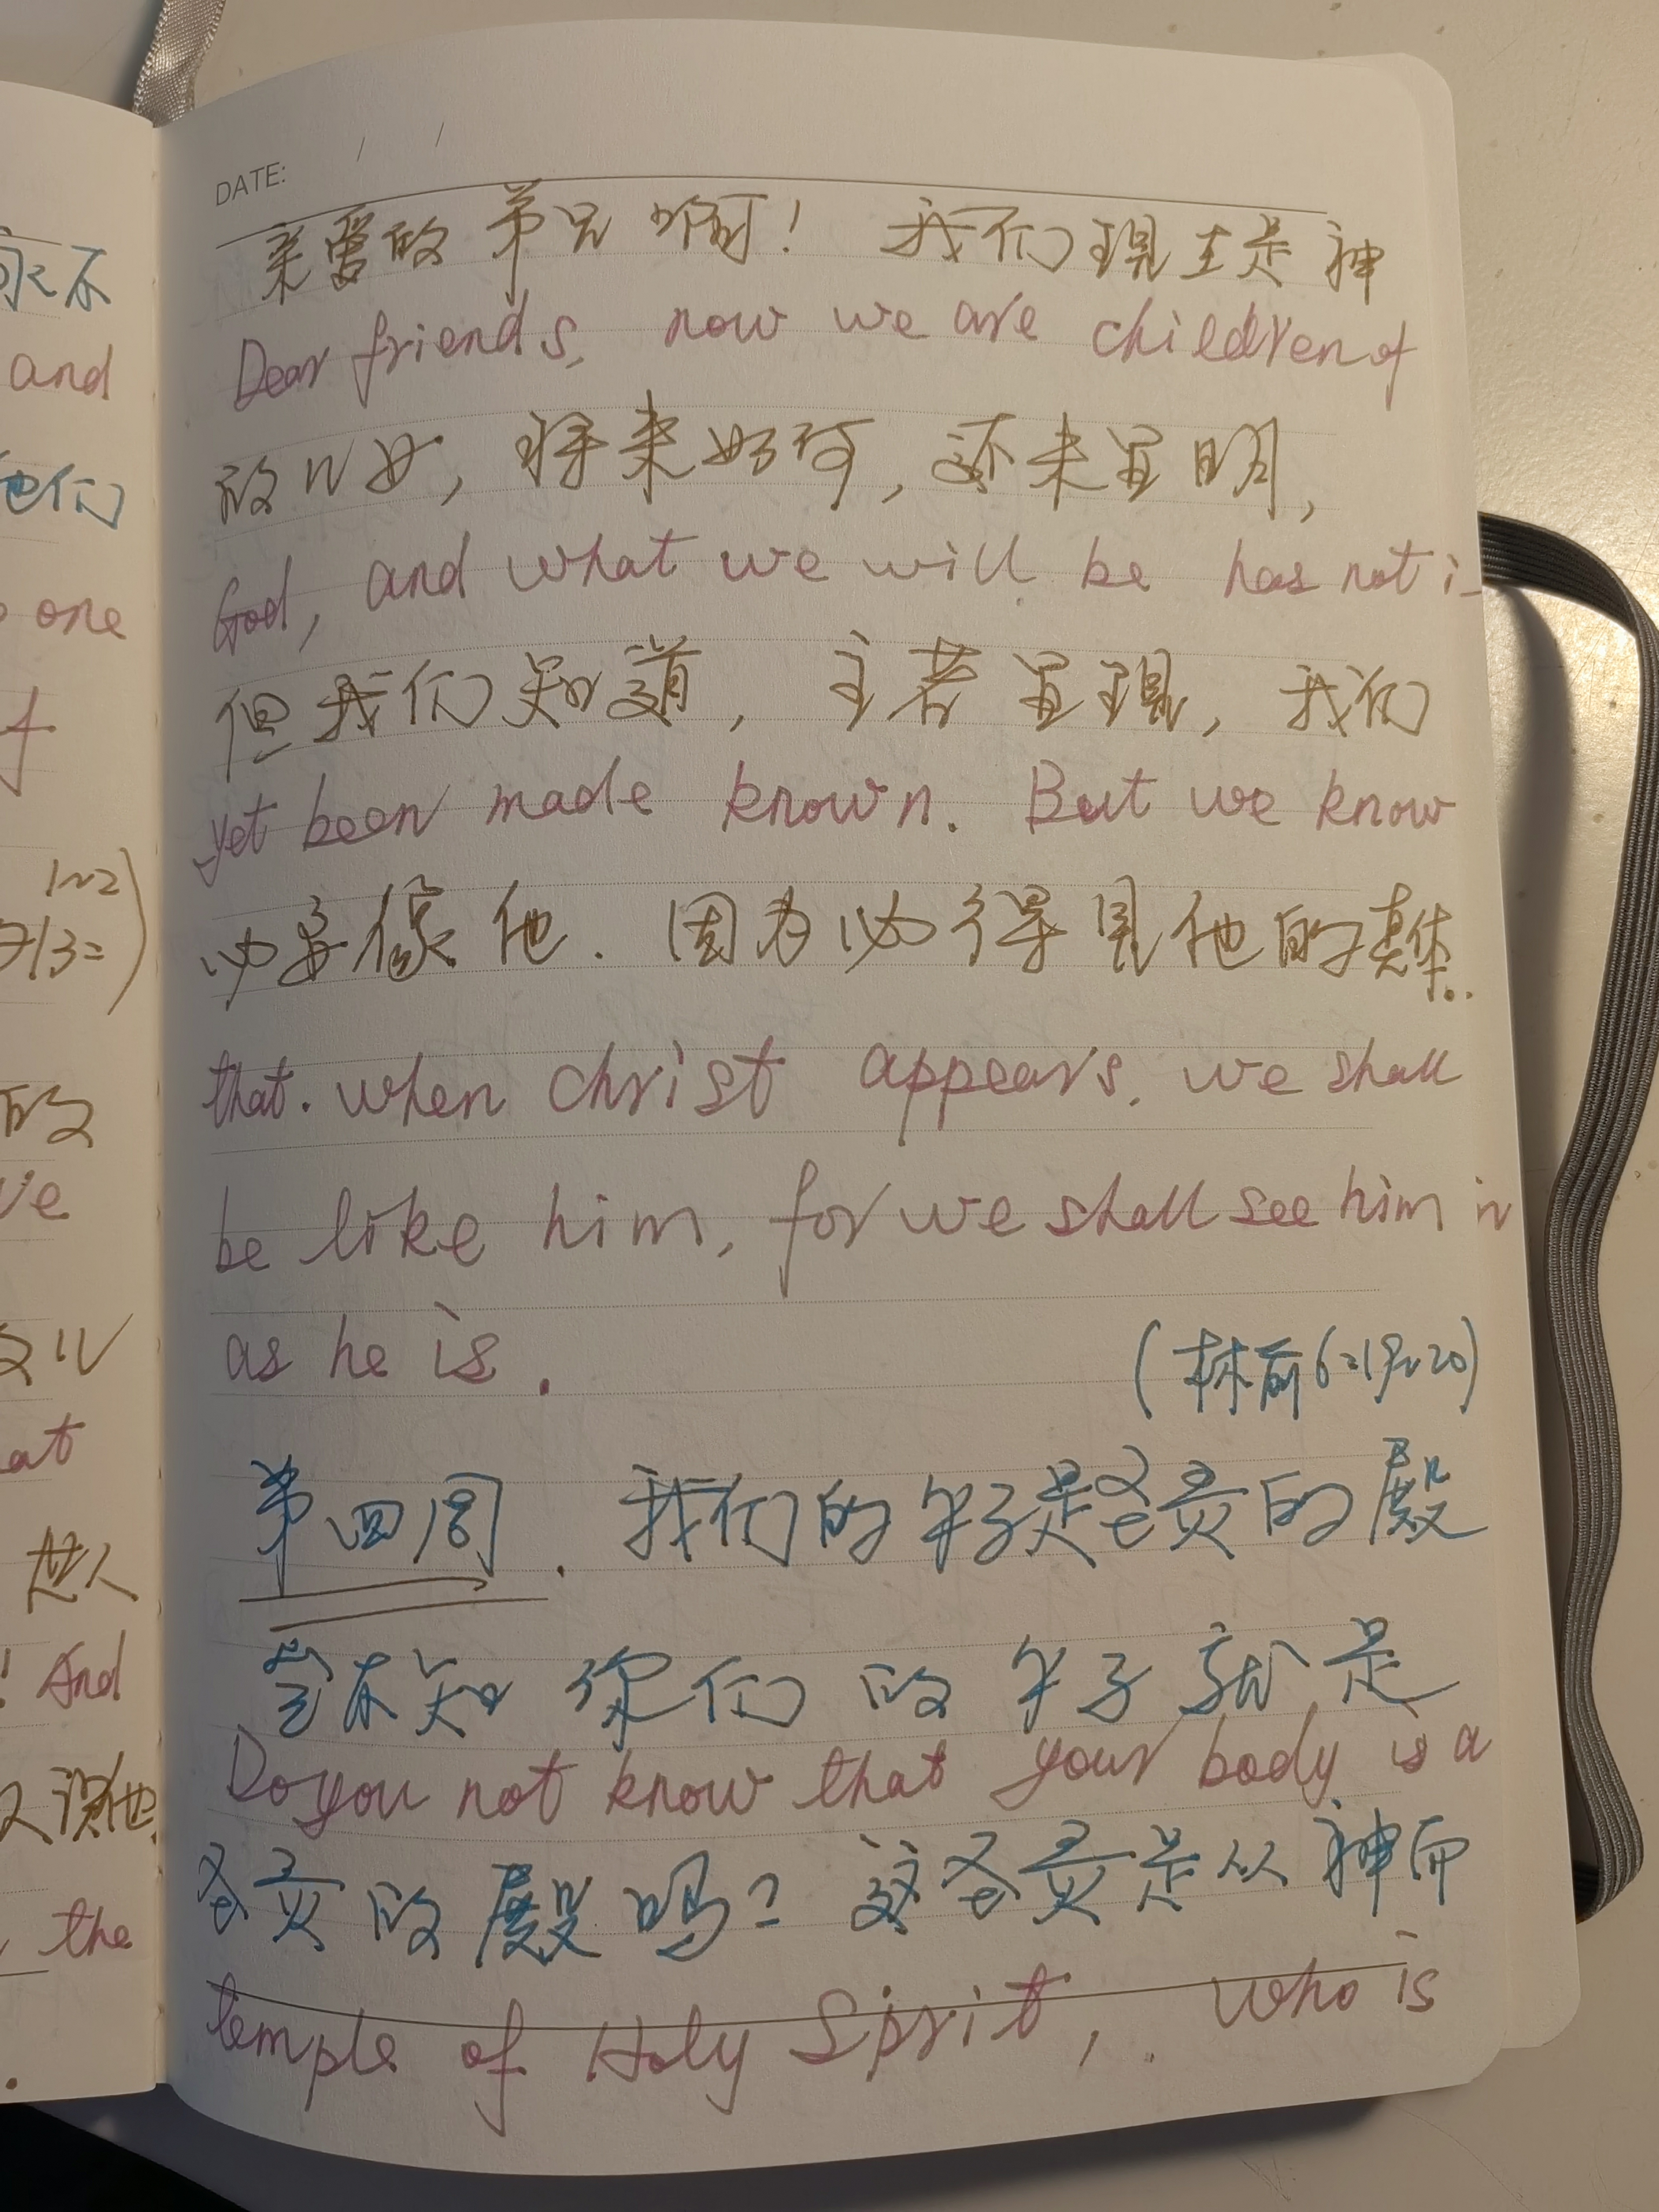 永不
and
他们
one
f
1~2)
3=)
的
ve
at
世人
! And
认识他
, the
DATE: / /
亲爱的弟兄啊！ 我们现在是神
Dear friends, now we are childdren of
的儿女，将来如何，还未显明，
God, and what we will be has not
但我们知道，主若显现，我们
yet been made known. But we know
必要像他．因为必得见他的真体．
that. when christ appears, we shall
be like him, for we shall see him
as he is.
(林前6:19~20)
第四周．我们的身子是圣灵的殿
岂不知你们的身子就是
Do you not know that your body is a
圣灵的殿吗？这圣灵是从神而
temple of Holy Spirit, who is